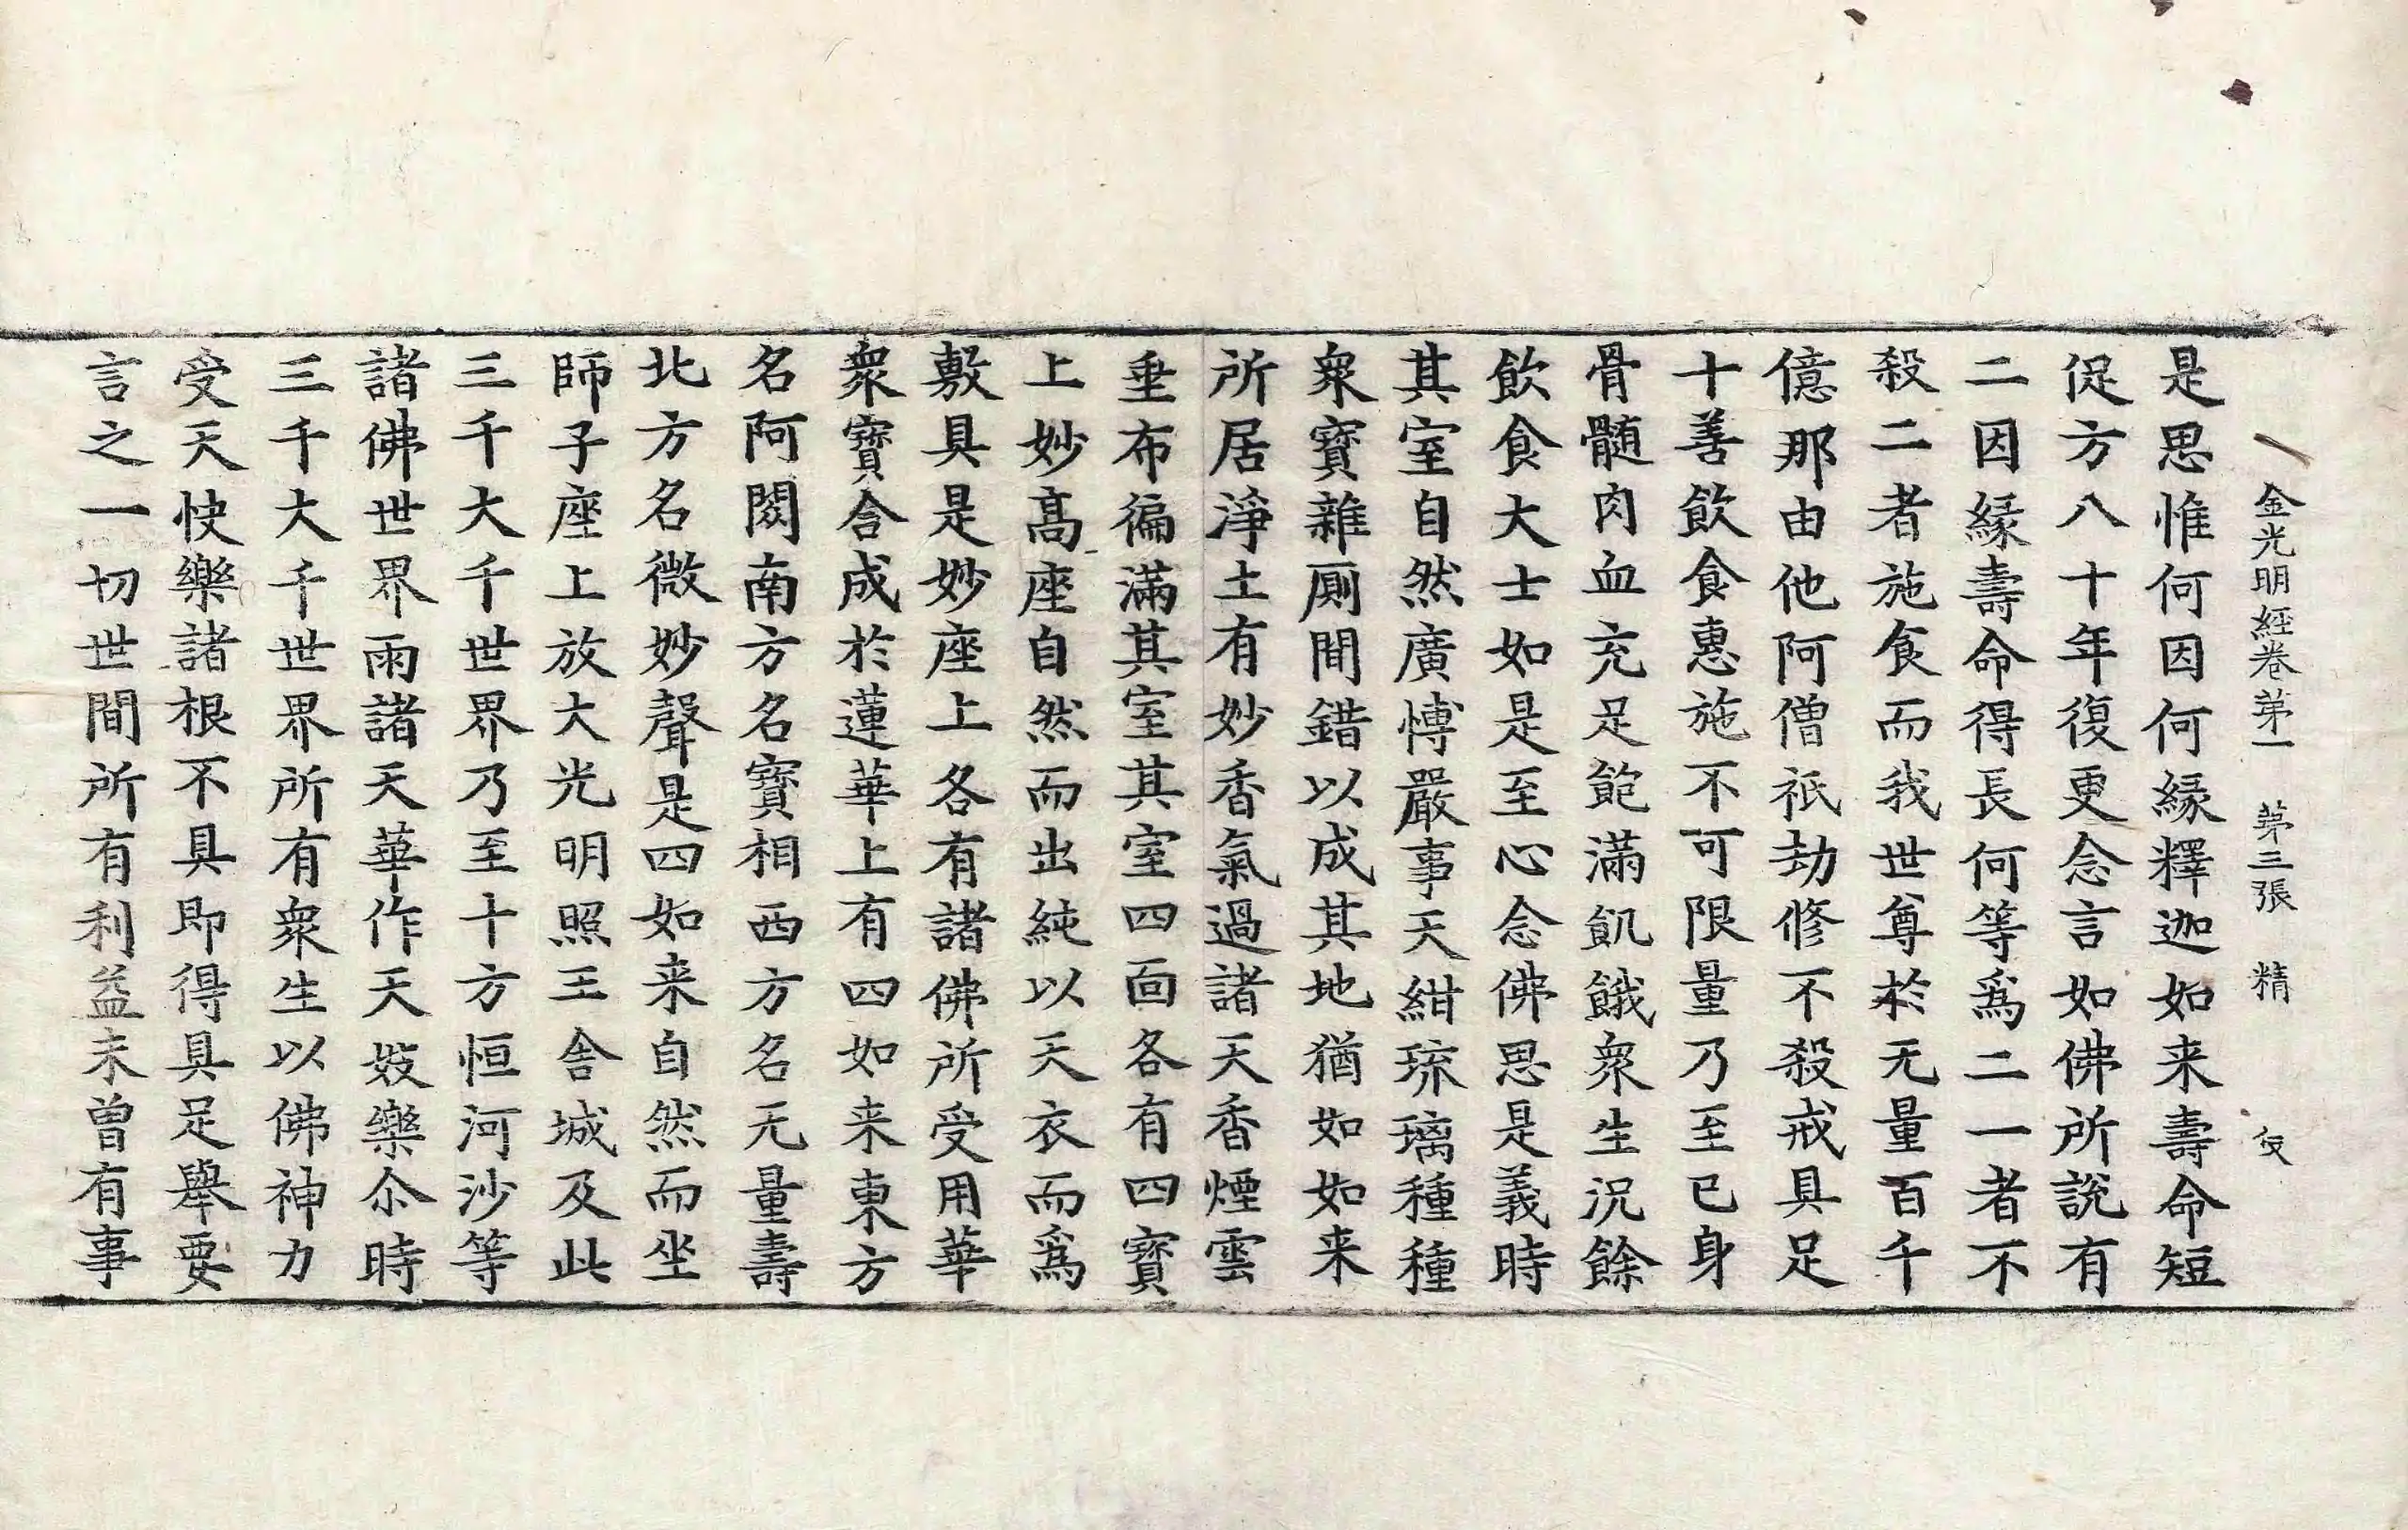 金光明經卷第一 第三張 精
是思惟何因何縁釋迦如来壽命短
促方八十年復更念言如佛所説有
二因縁壽命得長何等爲二一者不
殺二者施食而我世尊於无量百千
億那由他阿僧祇劫修不殺戒具足
十善飲食惠施不可限量乃至已身
骨髓肉血充足飽滿飢餓衆生況餘
飲食大士如是至心念佛思是義時
其室自然廣愽嚴事天紺琉璃種種
衆寶雜厠間錯以成其地猶如如来
所居淨土有妙香氣過諸天香煙雲
垂布徧滿其室其室四面各有四寶
上妙髙座自然而出純以天衣而爲
敷具是妙座上各有諸佛所受用華
衆寶合成於蓮華上有四如来東方
名阿閦南方名寶相西方名无量壽
北方名微妙聲是四如来自然而坐
師子座上放大光明照王舍城及此
三千大千世界乃至十方恒河沙等
諸佛世界雨諸天華作天妓樂尒時
三千大千世界所有衆生以佛神力
受天快樂諸根不具即得具足舉要
言之一切世間所有利益未曽有事